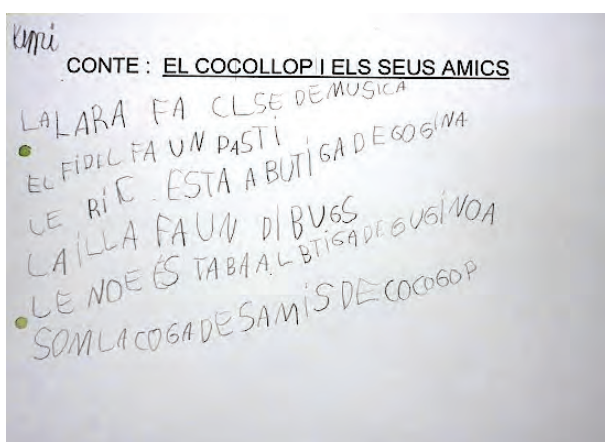 Kimi
CONTE : EL COCOLLOP I ELS SEUS AMICS
LA LARA FA CLSE DE MUSICA
EL FIDEL FA UN PASTI
LE RIC ESTA A BUTIGA DE GOGINA
LA ILLA FA UN DIBUGS
LE NOE ES TABA AL BTIGA DE GUGINOA
SOM LA COGA DE SAMIS DE COCOGOP